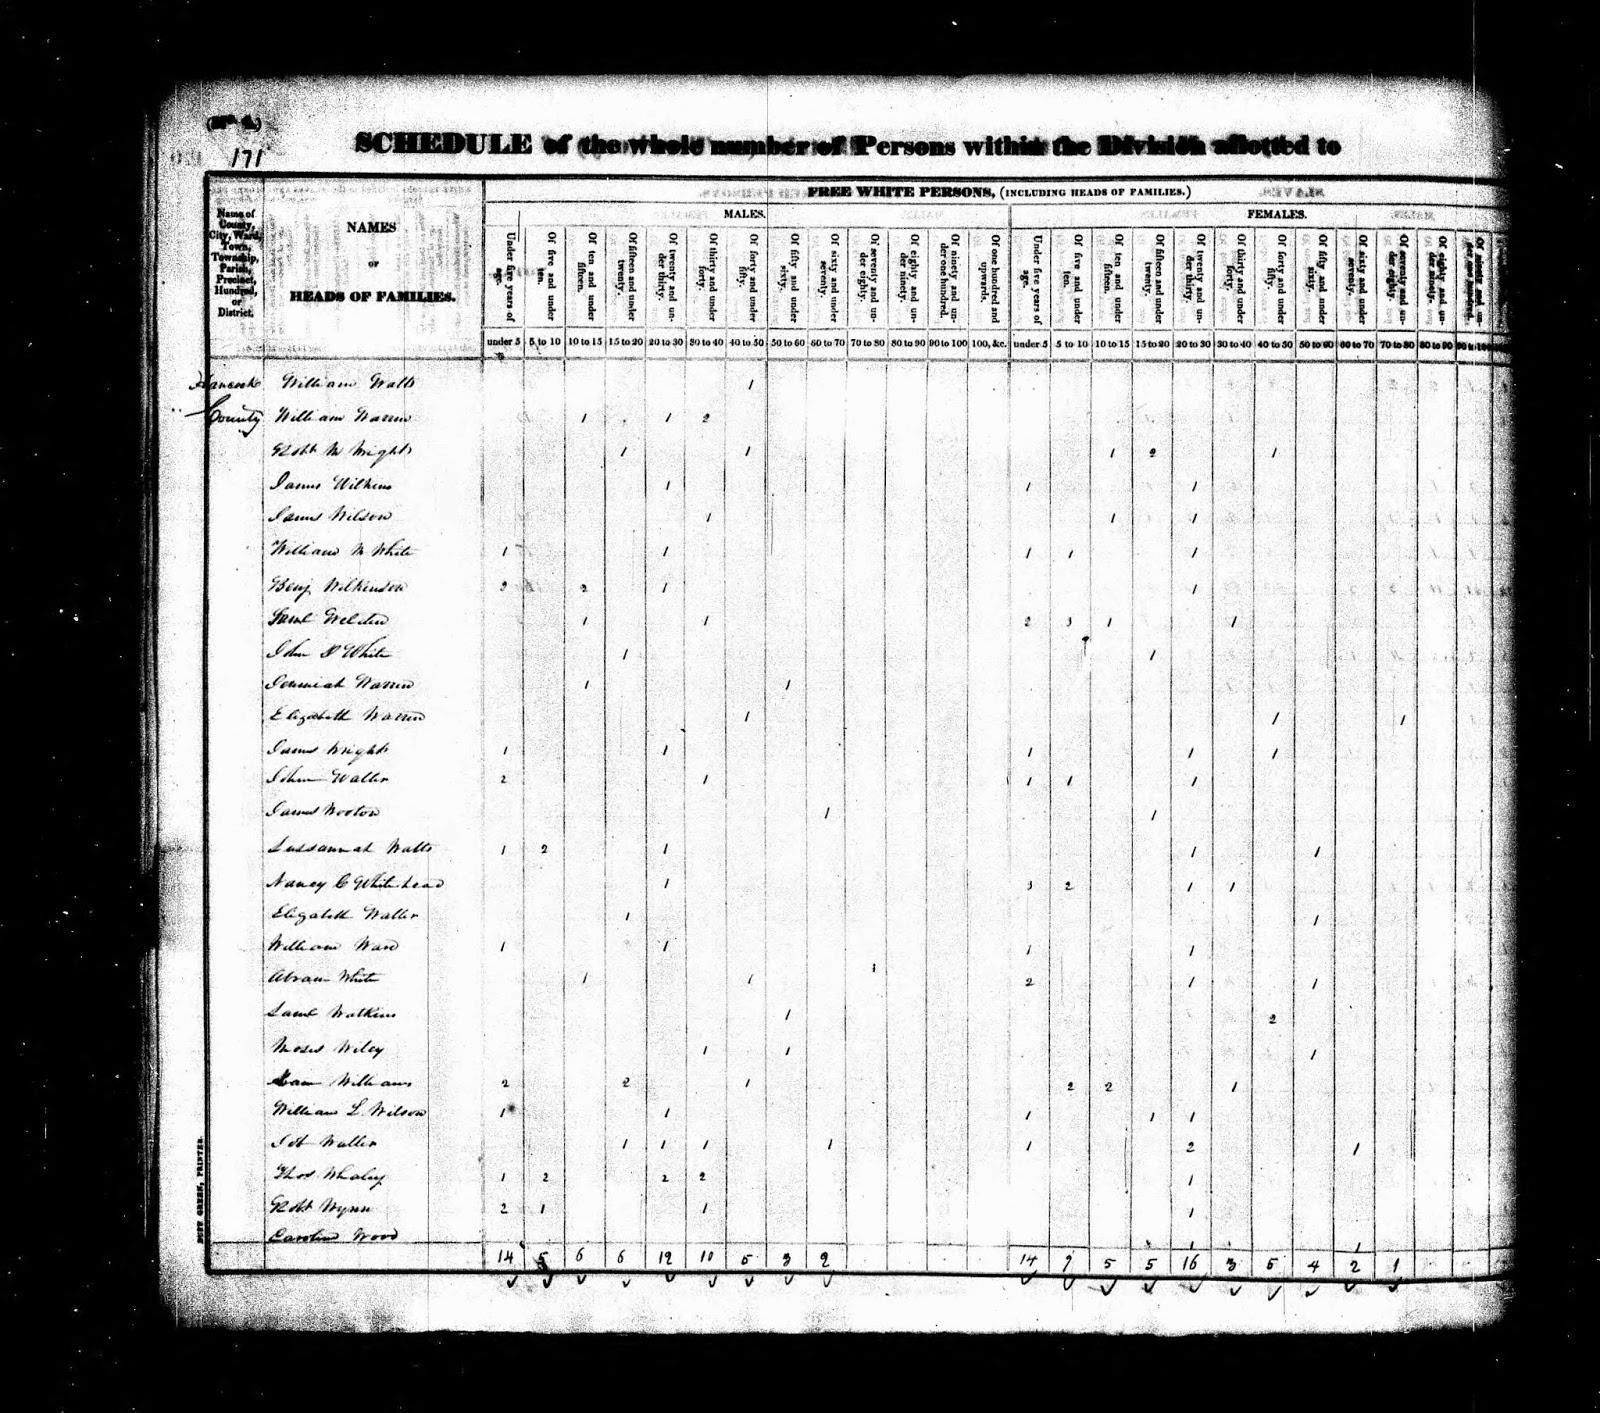 (No. 1.)
171
SCHEDULE of the whole number of Persons within the Division allotted to
FREE WHITE PERSONS, (INCLUDING HEADS OF FAMILIES.)
Name of County, City, Ward, Town, Township, Parish, Precinct, Hundred, or District.
NAMES
OR
HEADS OF FAMILIES.
MALES. FEMALES.
Under five years of age. Of five and under ten. Of ten and under fifteen. Of fifteen and under twenty. Of twenty and under thirty. Of thirty and under forty. Of forty and under fifty. Of fifty and under sixty. Of sixty and under seventy. Of seventy and under eighty. Of eighty and under ninety. Of ninety and under one hundred. Of one hundred and upwards. Under five years of age. Of five and under ten. Of ten and under fifteen. Of fifteen and under twenty. Of twenty and under thirty. Of thirty and under forty. Of forty and under fifty. Of fifty and under sixty. Of sixty and under seventy. Of seventy and under eighty. Of eighty and under ninety. Of ninety and under one hundred.
under 5 5 to 10 10 to 15 15 to 20 20 to 30 30 to 40 40 to 50 50 to 60 60 to 70 70 to 80 80 to 90 90 to 100 100, &c. under 5 5 to 10 10 to 15 15 to 20 20 to 30 30 to 40 40 to 50 50 to 60 60 to 70 70 to 80 80 to 90 90 to 100
Hancock William Watts 1
County William Warren 1 1 2
Robt M Wright 1 1 1 2 1
James Wilkins 1 1 1
James Wilson 1 1 1
William M White 1 1 1 1 1
Benj Wilkinson 2 2 1 1
Saml Weldon 1 1 2 3 1 1
John D White 1 1
Jeremiah Warren 1 1
Elizabeth Warren 1 1 1
James Wright 1 1 1 1 1
John Waller 2 1 1 1 1
James Wooton 1 1
Sussannah Watts 1 2 1 1 1
Nancy C Whitehead 1 3 2 1 1
Elizabeth Waller 1 1
William Ward 1 1 1 1
Abram White 1 1 1 2 1 1
Saml Watkins 1 2
Moses Wiley 1 1 1
Sam Williams 2 2 1 2 2 1
William L Wilson 1 1 1 1 1
Job Waller 1 1 1 1 1 2 1
Thos Whaley 1 2 2 2 1
Robt Wynn 2 1 1 1
Caroline Wood 1 1
14 5 6 6 12 10 5 3 2 14 7 5 5 16 3 5 4 2 1
DUFF GREEN, PRINTER.